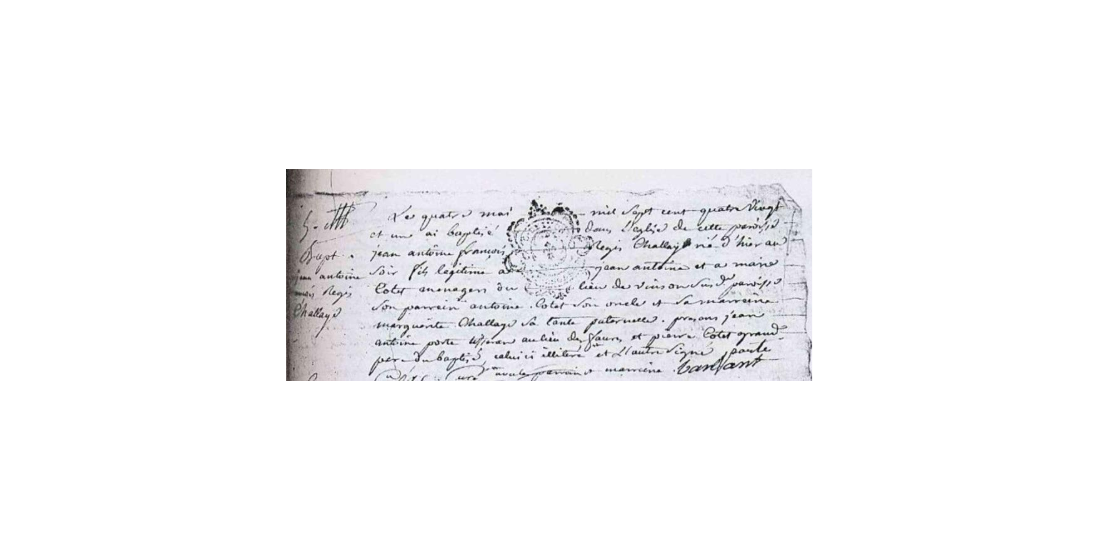 Bapt.
jean antoine
Regis
Challaye
Le quatre mai mil sept cent quatre vingt
et un ai baptisé dans l'église de cette paroisse
jean antoine françois Regis Challaye né d'hier au
soir fils légitime a jean antoine et a marie
Cotet menagers du lieu de vinson susd paroisse
son parrein antoine Cotet son oncle et sa marreine
marguerite Challaye sa tante paternelle. presens jean
antoine porte au lieu de faure et pierre Cotet grand
pere du baptisé, celui ci illiteré et l'autre signé porte
curé parrein marreine